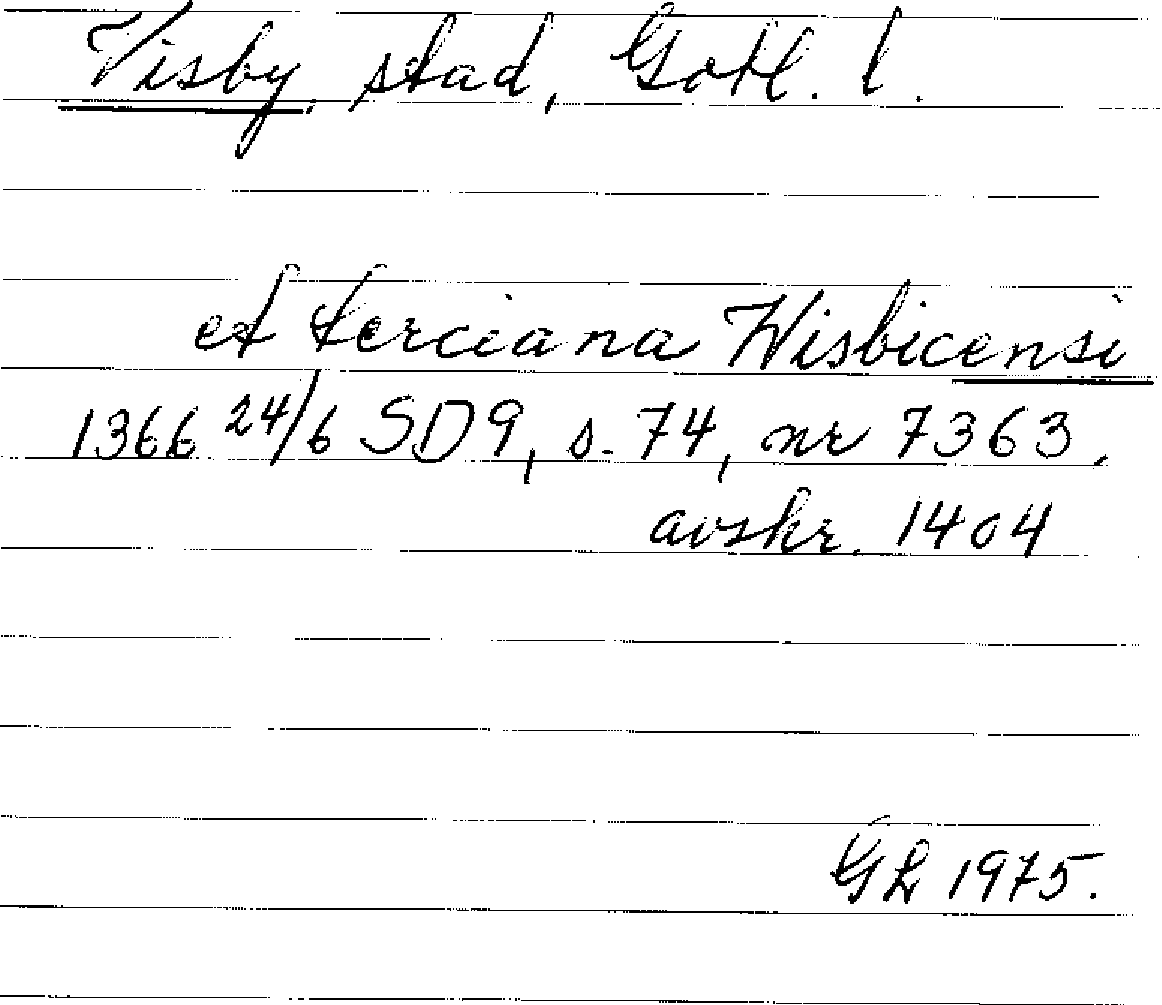 Visby, stad, Gotl. l.
et terciana Wisbicensi
1366 24/6 SD9, s. 74, nr 7363,
avskr. 1404
GL 1975.